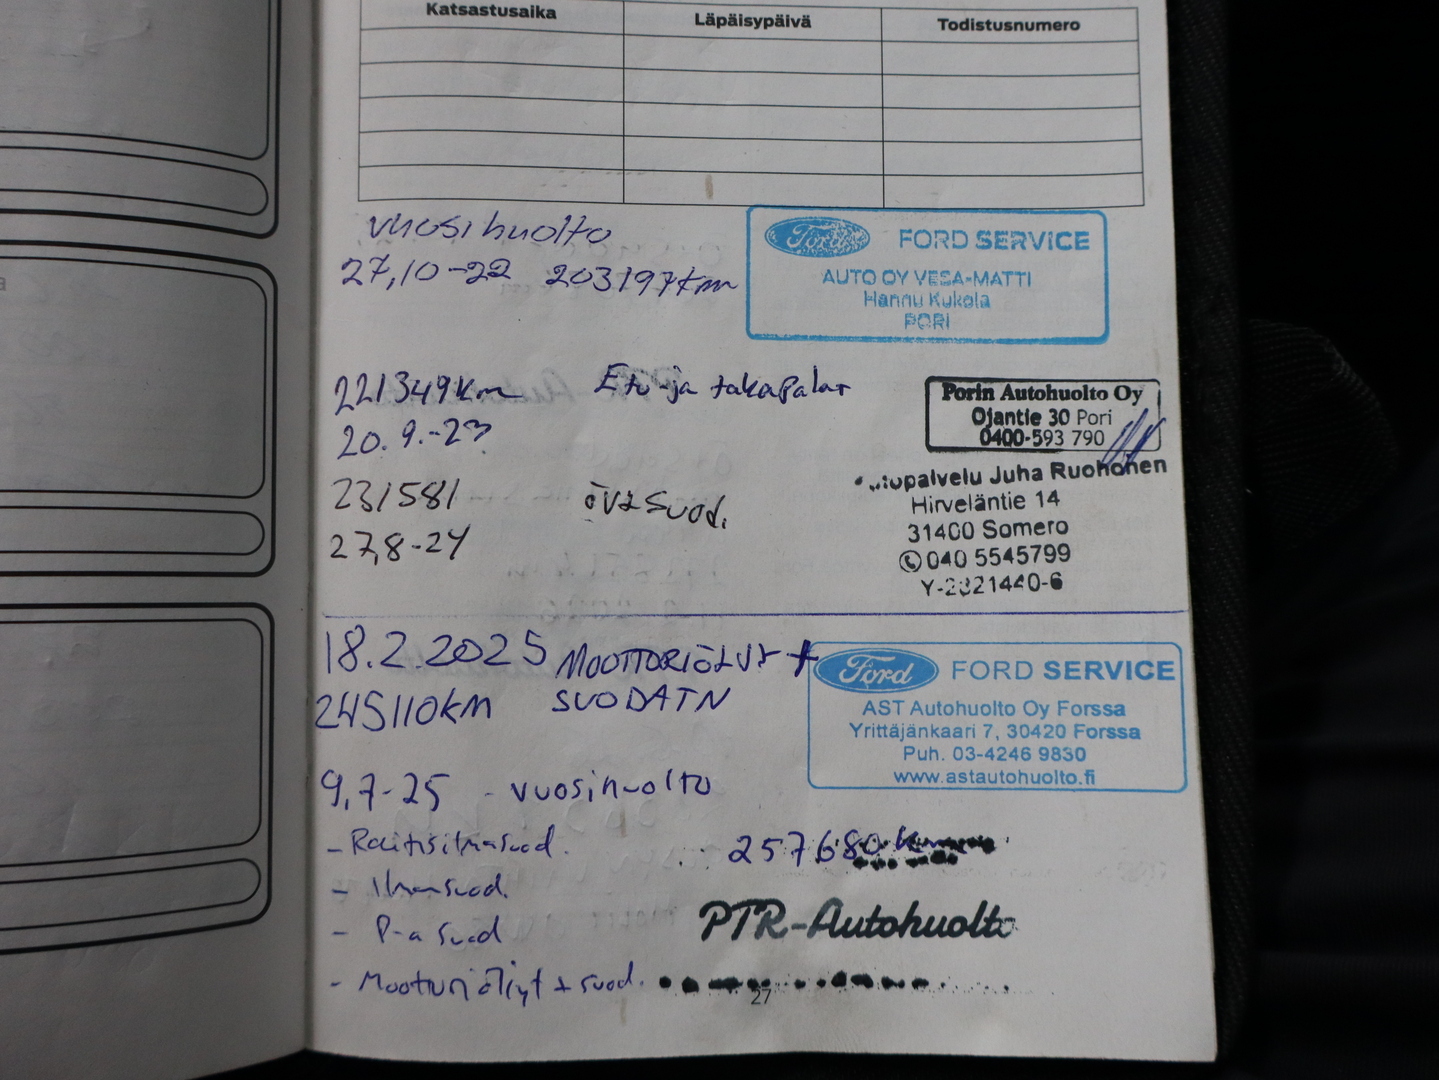 Katsastusaika Läpäisypäivä Todistusnumero
vuosihuolto
27,10-22 203197km
Ford FORD SERVICE
AUTO OY VESA-MATTI
Hannu Kukola
PORI
221349km Etu-ja takapalat
20.9.-23
Porin Autohuolto Oy
Ojantie 30 Pori
0400-593 790
231581 öv+suod.
27,8-24
Juha Ruohonen
Hirveläntie 14
31400 Somero
040 5545799
18.2.2025 MOOTTORIÖLJY +
245110KM SUODATN
Ford FORD SERVICE
AST Autohuolto Oy Forssa
Yrittäjänkaari 7, 30420 Forssa
Puh. 03-4246 9830
www.astautohuolto.fi
9,7-25 - vuosihuolto
- Raitisilmasuod.
257680 km
- Ilmansuod.
- P-a suod
PTR-Autohuolto
- Moottoriöljyt + suod.
27